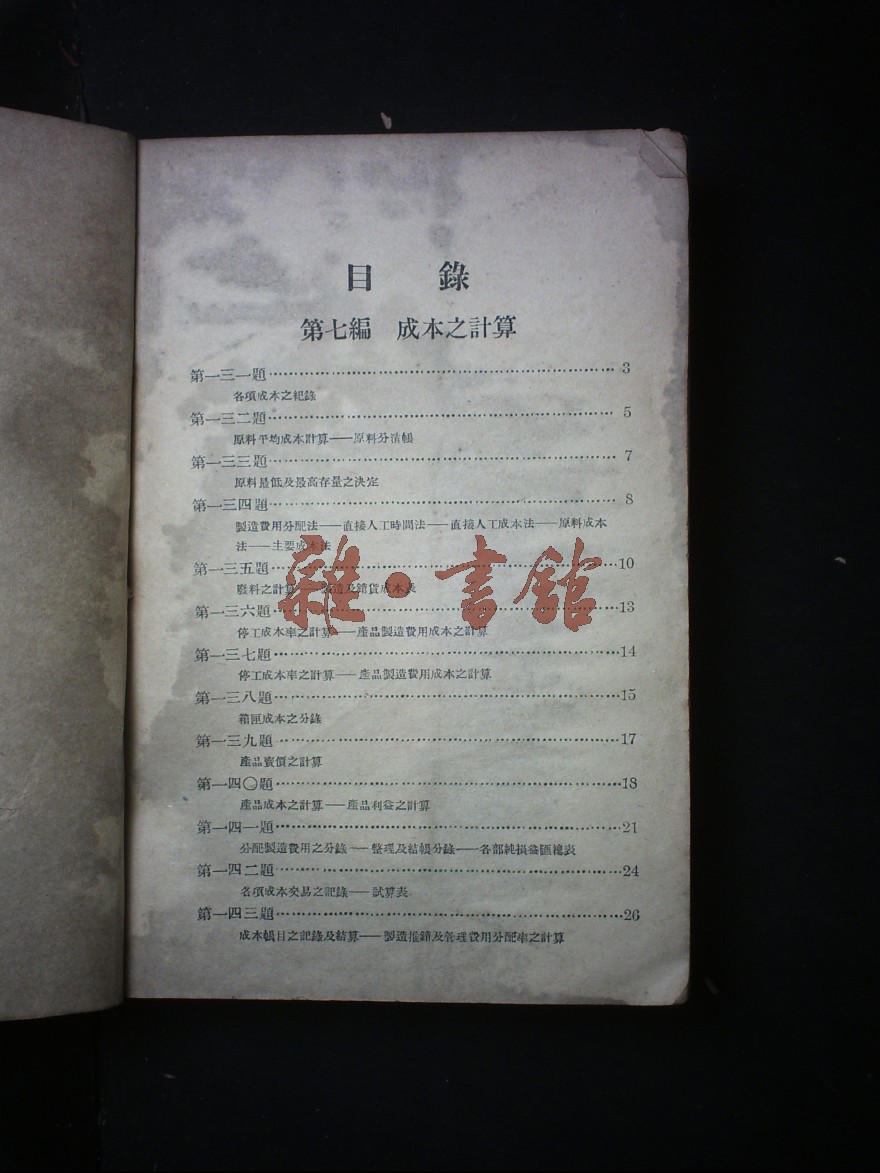 目 錄
第七編 成本之計算
第一三一題…………3
各項成本之紀錄
第一三二題…………5
原料平均成本計算——原料分清帳
第一三三題…………7
原料最低及最高存量之決定
第一三四題…………8
製造費用分配法——直接人工時間法——直接人工成本法——原料成本
法——主要成本法
第一三五題…………10
廢料之計算——製造及銷貨成本表
第一三六題…………13
停工成本率之計算——產品製造費用成本之計算
第一三七題…………14
停工成本率之計算——產品製造費用成本之計算
第一三八題…………15
箱匣成本之分錄
第一三九題…………17
產品賣價之計算
第一四〇題…………18
產品成本之計算——產品利益之計算
第一四一題…………21
分配製造費用之分錄——整理及結帳分錄——各部純損益匯總表
第一四二題…………24
各項成本交易之記錄——試算表
第一四三題…………26
成本帳目之記錄及結算——製造推銷及管理費用分配率之計算
雜·書館